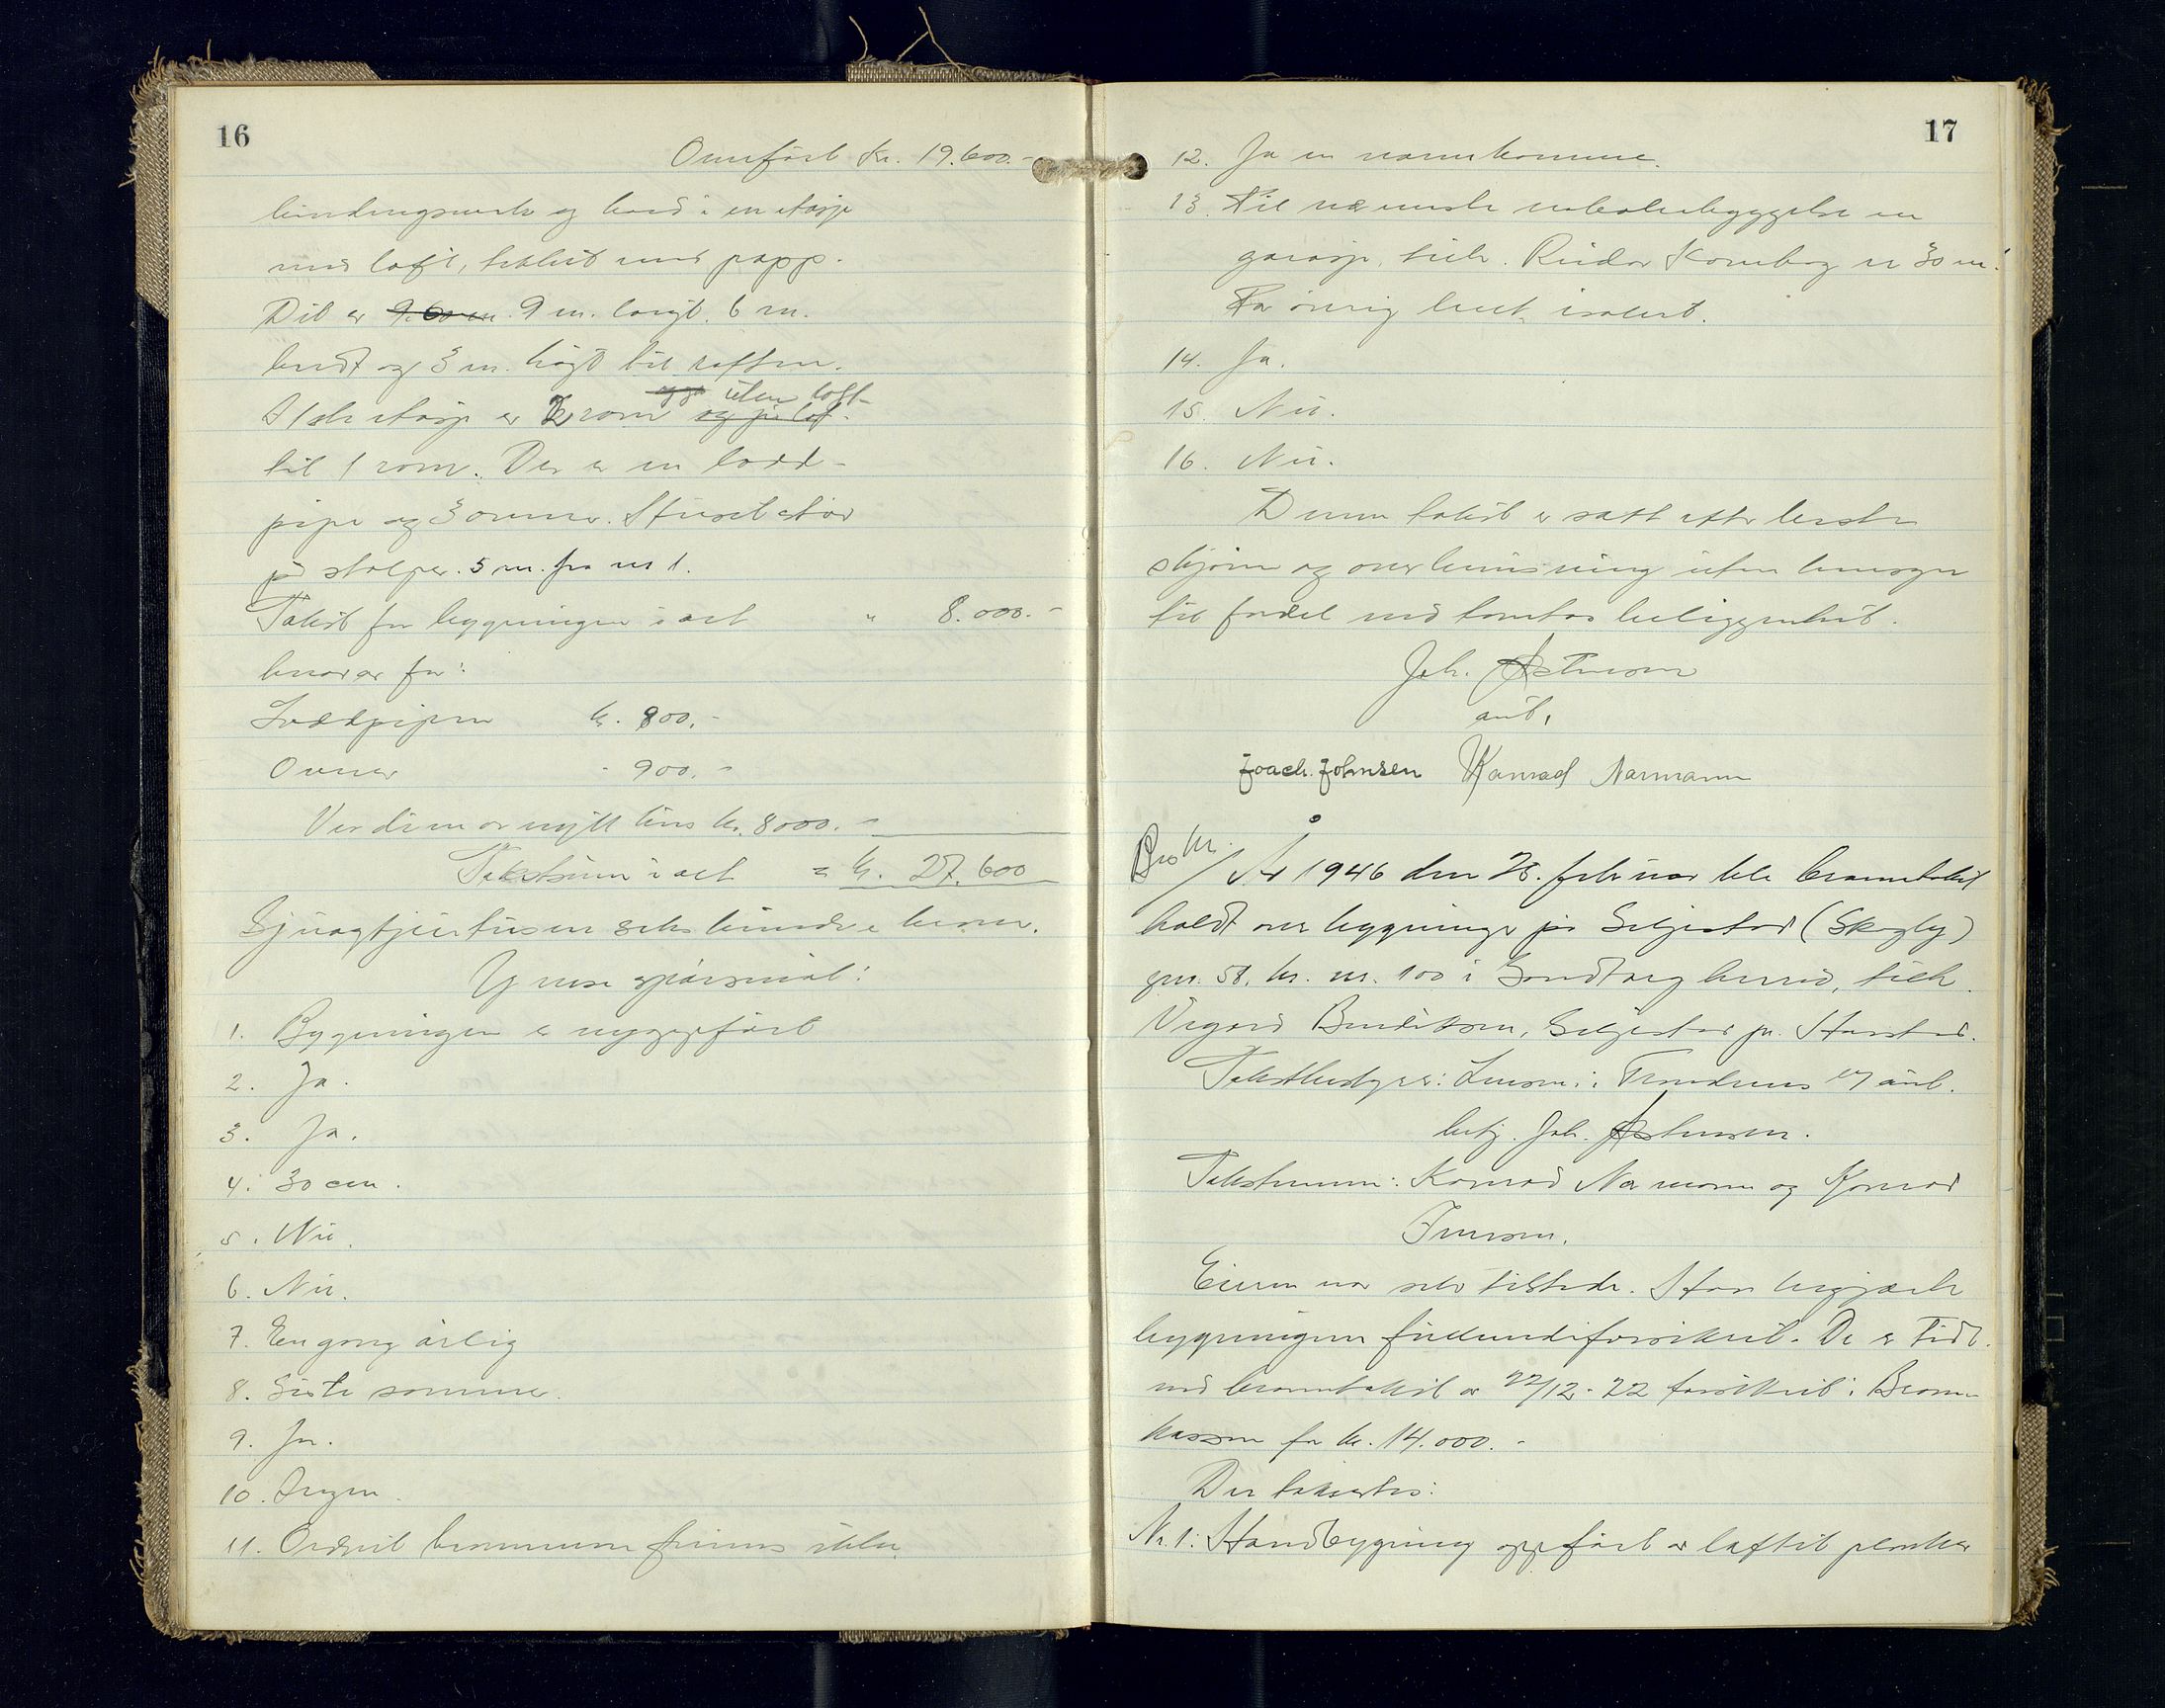 16
Overført kr. 19.600.-
bindingsverk og bord i en etasje
med loft, tekket med papp.
Det er 9.60 m. 9 m. langt. 6 m.
bredt og 3 m. høgt til raften.
I 1ste etasje er 2 rom uten loft
til 1 rom. Der er en lodd-
pipe og 3 ovner. Huset står
på stolper. 5 m. fra nr 1.
Takst for bygningen i alt " 8.000.-
herav for:
Loddpipen kr. 800.-
Ovner - 900.-
Verdien av nytt hus kr. 8000.-
Takstsum i alt = kr. 27.600
Tjuesjutusen seks hundre kroner.
Ymse spørsmål:
1. Bygningen er nyoppført
2. Ja.
3. Ja.
4. 30 cm.
5. Nei.
6. Nei.
7. En gang årlig
8. Siste sommer.
9. Ja.
10. Ingen.
11. Ordnet brannvern finns ikke.
17
12. Ja en vannkomme.
13. Til nærmeste nabobebyggelse en
garasje, tilh. Reidar Kornberg er 30 m.
For øvrig helt isolert.
14. Ja.
15. Nei.
16. Nei.
Denne takst er satt etter beste
skjønn og overbevisning uten hensyn
til fordel ved tomtas beliggenhet.
Joh.
aut.
Joach. Johnsen Konrad Normann
År 1946 den 28. februar ble branntakst
holdt over bygninger på Seljestad (Skogly)
gnr. 58. br. nr. 100 i Sandtorg herred, tilh.
Vigard Bendiksen, Seljestad pr. Harstad.
Takstbestyrer: Lensm. i Trondenes v/ aut.
betj. Joh.
Takstmenn: Konrad Normann og Konrad
Eieren var selv tilstede. Han begjærte
bygningene fullverdiforsikret. De er tidl.
ved branntakst av 22/12-22 forsikret i Brann-
kassen for kr. 14.000.-
Der takseres:
Nr. 1: Våndbygning oppført av laftet planker